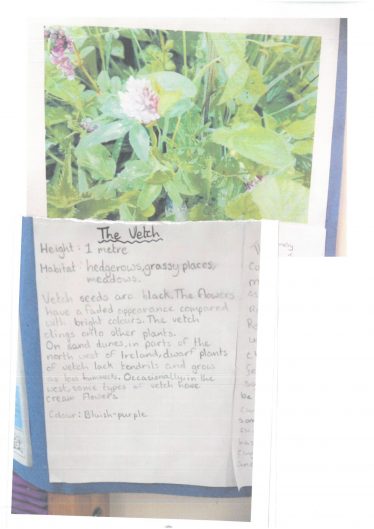 The Vetch
Height: 1 metre
Habitat: hedgerows, grassy places,
meadows.
Vetch seeds are black. The flowers
have a faded appearance compared
with bright colours. The vetch
clings onto other plants.
On sand dunes, in parts of the
north west of Ireland, dwarf plants
of vetch lack tendrils and grow
as low hummocks. Occasionally, in the
west, some types of vetch have
cream flowers.
Colour: Bluish-purple